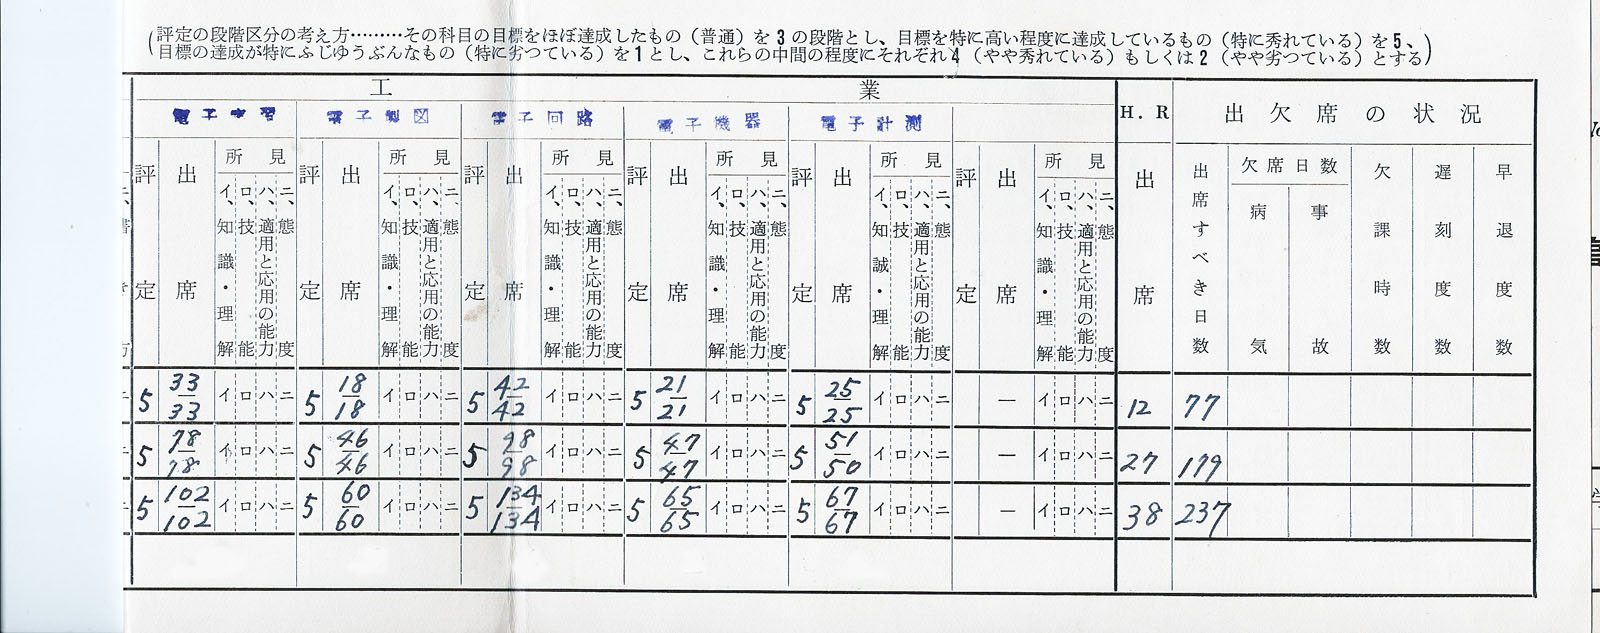 (評定の段階区分の考え方………その科目の目標をほぼ達成したもの（普通）を3の段階とし、目標を特に高い程度に達成しているもの（特に秀れている）を5、
目標の達成が特にふじゆうぶんなもの（特に劣つている）を1とし、これらの中間の程度にそれぞれ4（やや秀れている）もしくは2（やや劣つている）とする)
工 業
電子実習 電子製図 電子回路 電子機器 電子計測 H.R 出欠席の状況
評定 出席 所見 評定 出席 所見 評定 出席 所見 評定 出席 所見 評定 出席 所見 評定 出席 所見 出席 出席すべき日数 欠席日数 欠課時数 遅刻度数 早退度数
イ、知識・理解 ロ、技能 ハ、適用と応用の能力 ニ、態度 イ、知識・理解 ロ、技能 ハ、適用と応用の能力 ニ、態度 イ、知識・理解 ロ、技能 ハ、適用と応用の能力 ニ、態度 イ、知識・理解 ロ、技能 ハ、適用と応用の能力 ニ、態度 イ、知誠・理解 ロ、技能 ハ、適用と応用の能力 ニ、態度 イ、知識・理解 ロ、技能 ハ、適用と応用の能力 ニ、態度 病気 事故
5 33/33 イ ロ ハ ニ 5 18/18 イ ロ ハ ニ 5 42/42 イ ロ ハ ニ 5 21/21 イ ロ ハ ニ 5 25/25 イ ロ ハ ニ — イ ロ ハ ニ 12 77
5 78/78 イ ロ ハ ニ 5 46/46 イ ロ ハ ニ 5 98/98 イ ロ ハ ニ 5 47/47 イ ロ ハ ニ 5 51/50 イ ロ ハ ニ — イ ロ ハ ニ 27 179
5 102/102 イ ロ ハ ニ 5 60/60 イ ロ ハ ニ 5 134/134 イ ロ ハ ニ 5 65/65 イ ロ ハ ニ 5 67/67 イ ロ ハ ニ — イ ロ ハ ニ 38 237